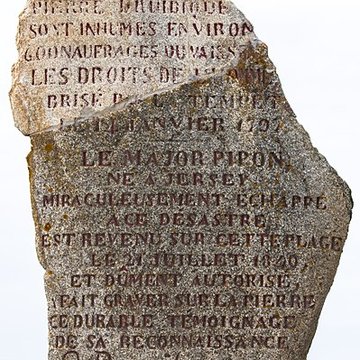 PIERRE DRUIDIQUE
SONT INHUMES ENVIRON
600 NAUFRAGES DU VAISS
LES DROITS DE L'HOM
BRISE TEMPET
LE 14 JANVIER 1797
LE MAJOR PIPON
NE A JERSEY
MIRACULEUSEMENT ECHAPPE
A CE DESASTRE,
EST REVENU SUR CETTE PLAGE
LE 21 JUILLET 1840,
ET DÛMENT AUTORISE,
A FAIT GRAVER SUR LA PIERRE
CE DURABLE TEMOIGNAGE
DE SA RECONNAISSANCE